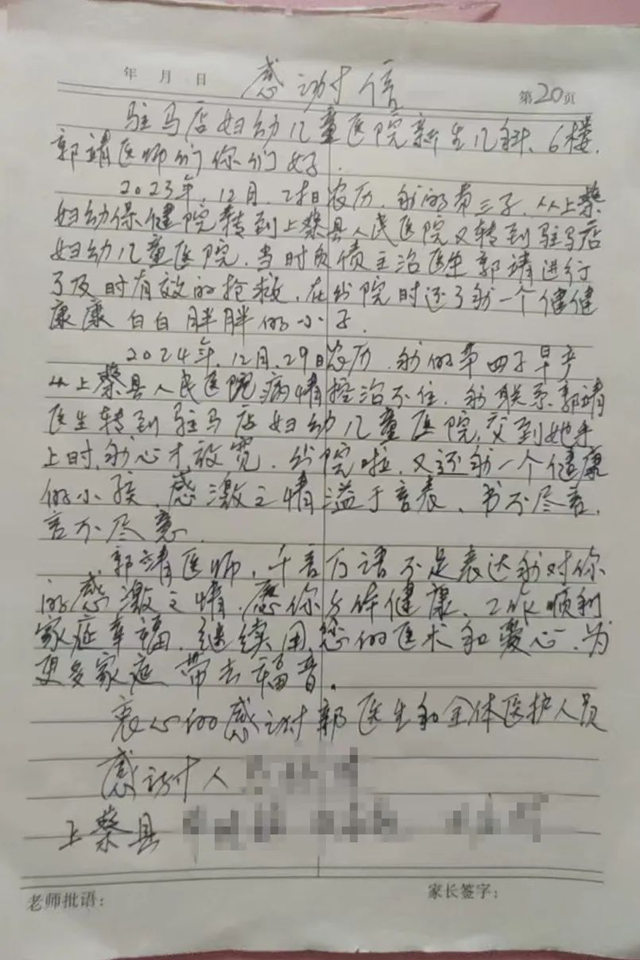 年 月 日 感谢信 第20页
驻马店妇幼儿童医院新生儿科、6楼,
郭靖医师们你们好.
2023年,12月,2日农历,我的第三子,从上蔡
妇幼保健院转到上蔡县人民医院又转到驻马店
妇幼儿童医院,当时负债主治医生郭靖进行
了及时有效的抢救,在出院时还了我一个健健
康康白白胖胖的小子.
2024年,12月,29日农历,我的第四子早产
从上蔡县人民医院病情控治不住,我联系郭靖
医生转到驻马店妇幼儿童医院,交到她手
上时,我心才放宽,出院啦,又还我一个健康
的小孩,感激之情溢于言表,书不尽言,
言不尽意.
郭靖医师,千言万语不足表达我对你
的感激之情,愿你身体健康,工作顺利
家庭幸福,继续用您的医术和爱心,为
更多家庭带去福音.
衷心的感谢郭医生和全体医护人员
感谢人
上蔡县
老师批语: 家长签字: